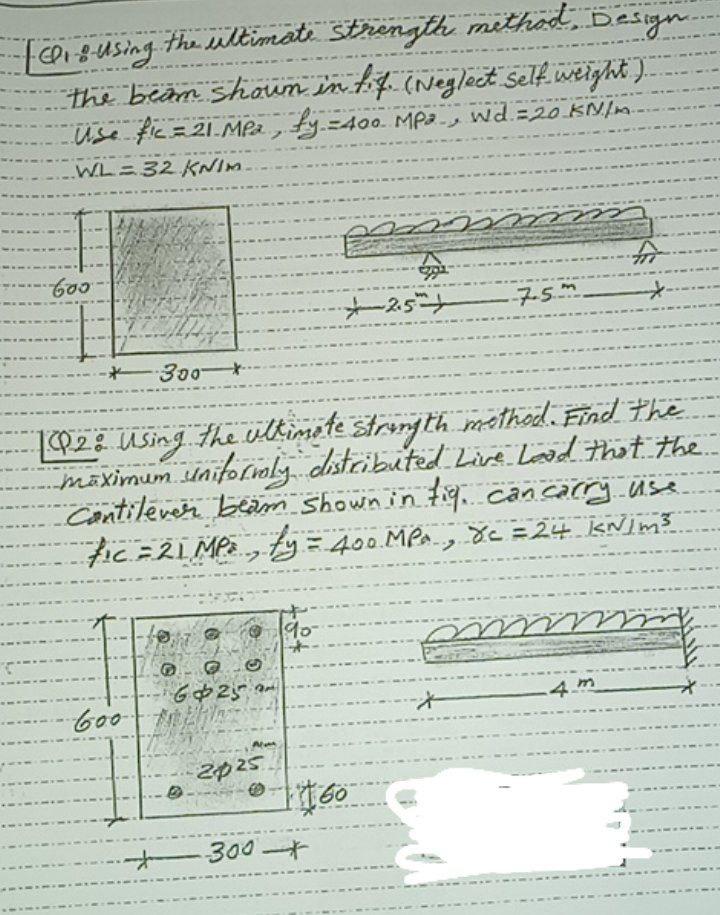 Q1: Using the ultimate strength method, Design
the beam shown in fig. (Neglect self weight)
Use f'c = 21 MPa, fy = 400 MPa, Wd = 20 KN/m
WL = 32 KN/m
600
300
2.5 m
7.5 m
Q2: Using the ultimate strength method. Find the
maximum uniformly distributed Live Load that the
Cantilever beam shown in fig. can carry use
f'c = 21 MPa, fy = 400 MPa, γc = 24 KN/m³
90
6ϕ25 mm
600
2ϕ25 mm
60
300
4 m